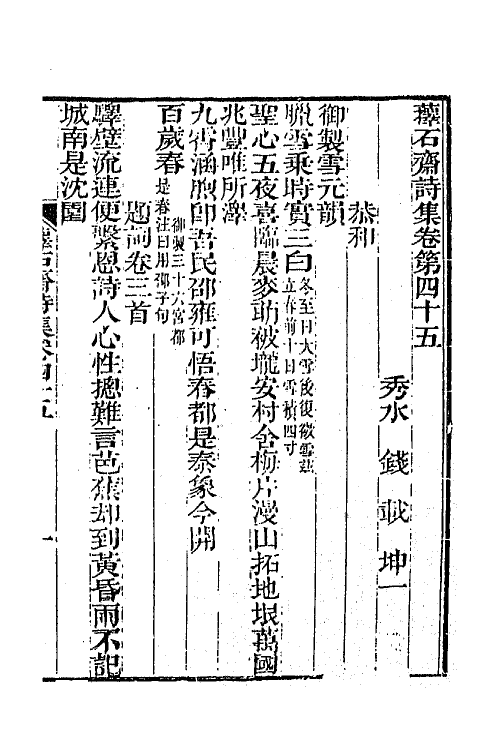 蘀石齋詩集卷第四十五
秀水 錢載 坤一
恭和
御製雪元韻
臘雪乘時實三白冬至日大雪後復微雪茲立春前十日雪積四寸
聖心五夜喜臨晨麥助被壠安村舍梅片漫山拓地垠萬國
兆豐唯所澤
九霄涵煦卽吾民邵雍可悟春都是泰象今開
百歲春御製三十六宮都是春注曰用邵子句
題詞卷三首
驛壁流連便繫恩詩人心性摠難言芭蕉却到黃昏雨不記
城南是沈園
蘀石齋詩集卷四十五
一